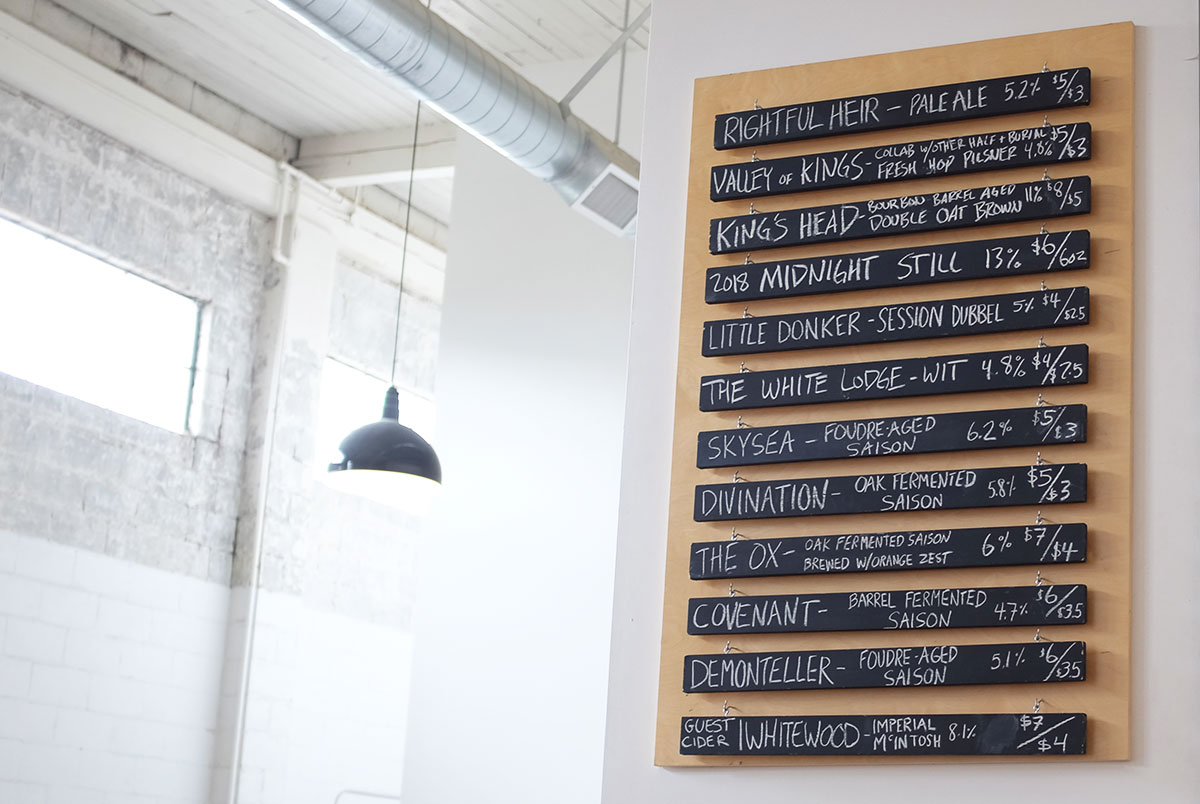 RIGHTFUL HEIR – PALE ALE 5.2% $5/$3
VALLEY OF KINGS - COLLAB W/OTHER HALF + BURIAL
FRESH HOP PILSNER 4.8% $5/$3
KING'S HEAD - BOURBON BARREL AGED
DOUBLE OAT BROWN 11% $8/$5
2018 MIDNIGHT STILL 13% $6/6OZ
LITTLE DONKER - SESSION DUBBEL 5% $4/$2.5
THE WHITE LODGE - WIT 4.8% $4/$2.5
SKYSEA – FOUDRE-AGED
SAISON 6.2% $5/$3
DIVINATION - OAK FERMENTED
SAISON 5.8% $5/$3
THE OX - OAK FERMENTED SAISON
BREWED W/ORANGE ZEST 6% $7/$4
COVENANT - BARREL FERMENTED
SAISON 4.7% $6/$3.5
DEMONTELLER - FOUDRE-AGED
SAISON 5.1% $6/$3.5
GUEST
CIDER | WHITEWOOD - IMPERIAL
McINTOSH 8.1% $7/$4